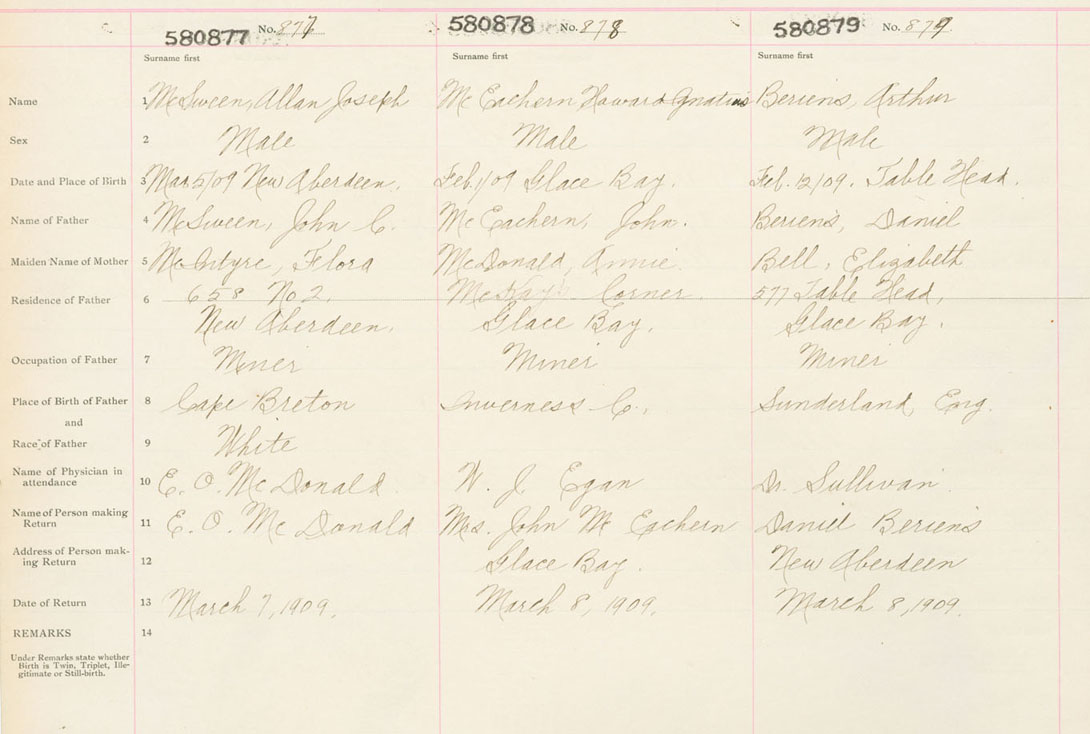 580877 No. 877 580878 No. 878 580879 No. 879
Surname first Surname first Surname first
Name 1 McSween, Allan Joseph McEachern Howard Ignatius Beriens, Arthur
Sex 2 Male Male Male
Date and Place of Birth 3 Mar 5/09 New Aberdeen. Feb. 1/09 Glace Bay. Feb. 12/09. Table Head.
Name of Father 4 McSween, John C. McEachern, John. Beriens, Daniel
Maiden Name of Mother 5 McIntyre, Flora McDonald, Annie. Bell, Elizabeth
Residence of Father 6 658 No 2. McKay's Corner. 577 Table Head,
New Aberdeen. Glace Bay. Glace Bay.
Occupation of Father 7 Miner Miner Miner
Place of Birth of Father 8 Cape Breton Inverness C. Sunderland, Eng.
and
Race of Father 9 White
Name of Physician in
attendance 10 E. O. McDonald W. J. Egan Dr. Sullivan
Name of Person making
Return 11 E. O. McDonald Mrs. John McEachern Daniel Beriens
Address of Person mak-
ing Return 12 Glace Bay. New Aberdeen
Date of Return 13 March 7, 1909. March 8, 1909. March 8, 1909.
REMARKS 14
Under Remarks state whether
Birth is Twin, Triplet, Ille-
gitimate or Still-birth.